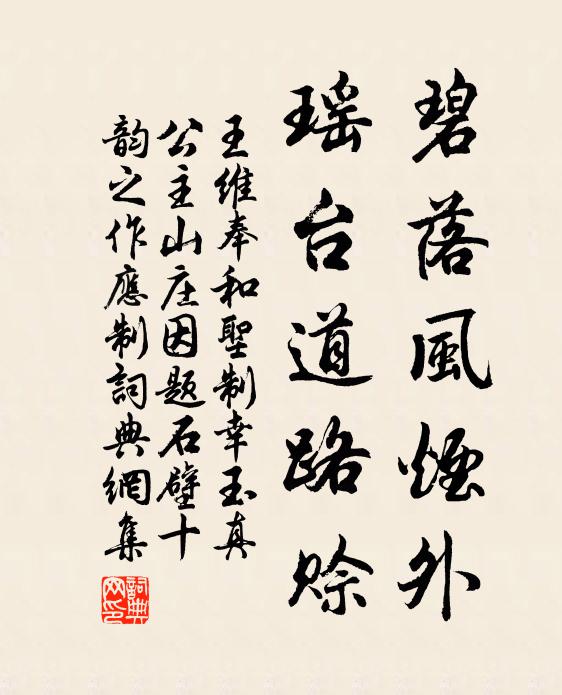 碧落風煙外
瑶台道路赊
王維奉和聖制幸玉真
公主山庄因题石壁十
韵之作應制詞典網集
詞典網印